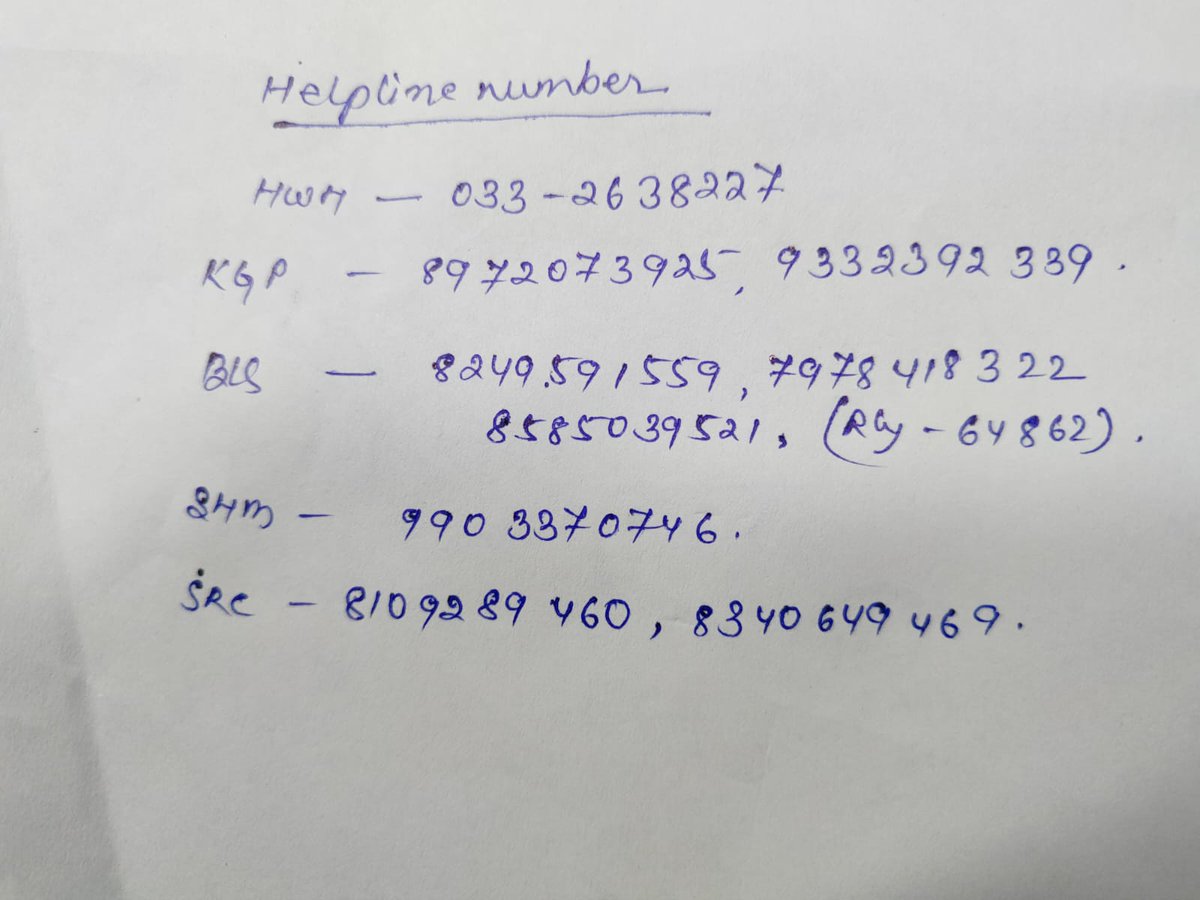 Helpline number
HWH – 033-2638227
KGP – 8972073925, 9332392339.
BLS – 8249591559, 7978418322
8585039521, (Rly - 64862).
SHM – 9903370746.
SRC – 8109289460, 8340649469.